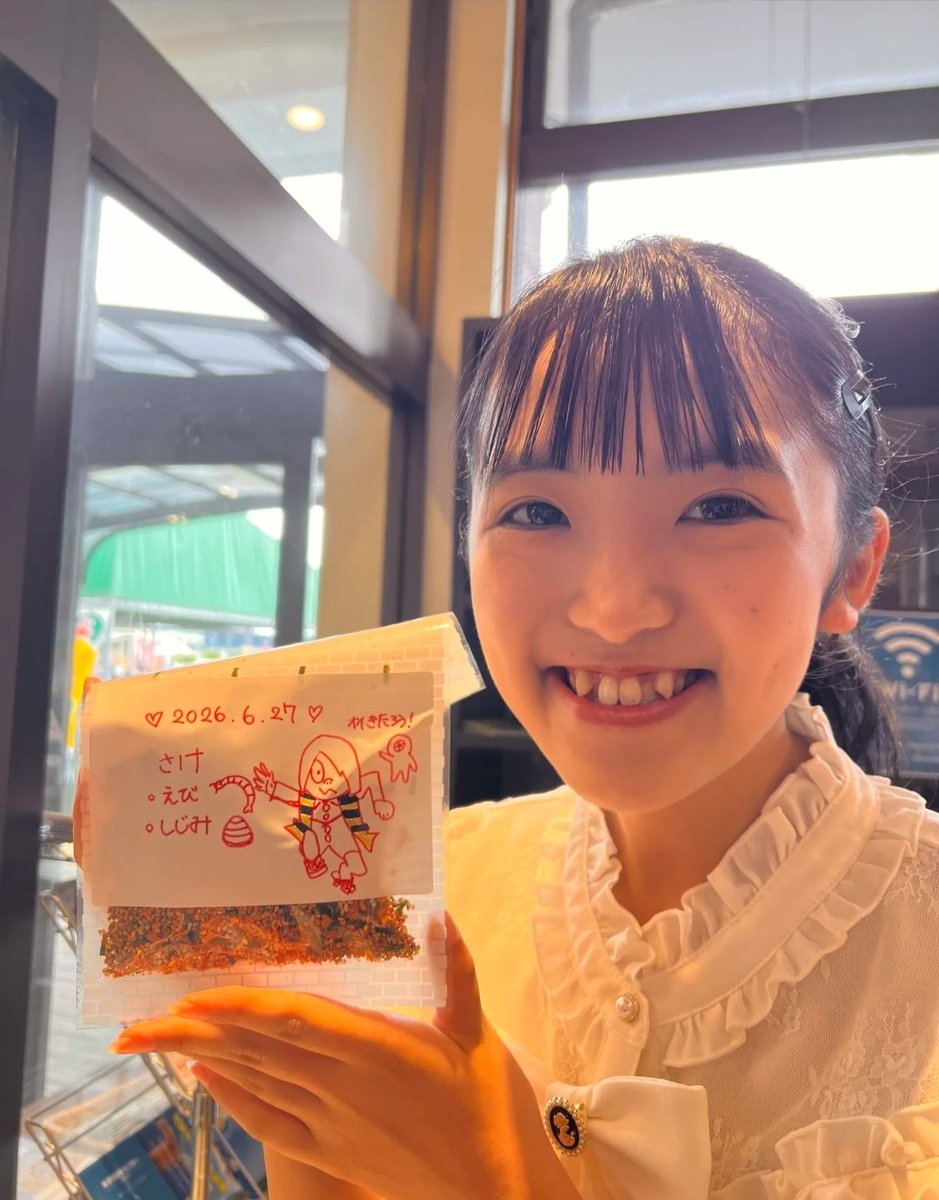 ♡ 2026.6.27 ♡
わきたろう!
さけ
。えび
。しじみ
WI-FI